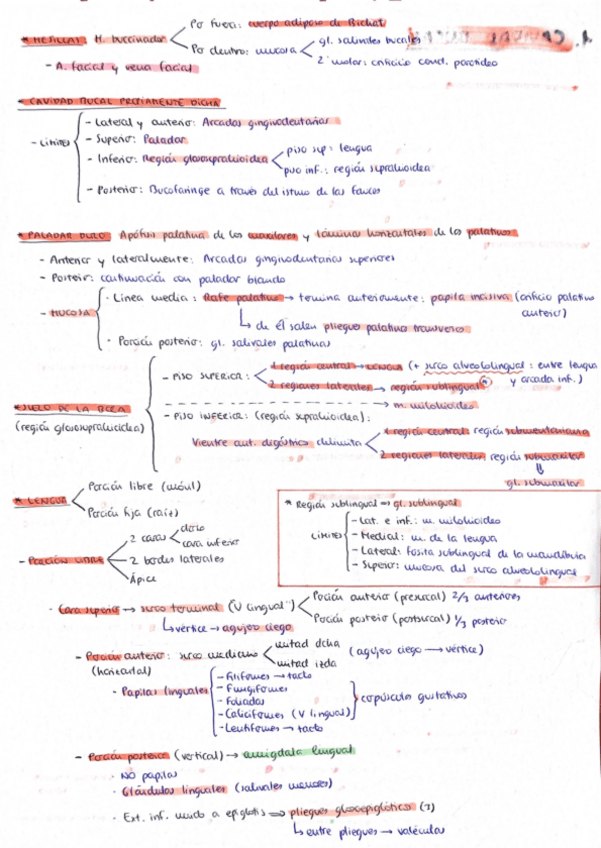 * MEJILLAS M. buccinador
Por fuera: cuerpo adiposo de Bichat
Por dentro: mucosa
gl. salivales bucales
2º molar: orificio cond. parotídeo
- A. facial y vena facial
* CAVIDAD BUCAL PROPIAMENTE DICHA
- Límites
- Lateral y anterior: Arcadas gingivodentarias
- Superior: Paladar
- Inferior: Región glososupralioidea
piso sup: lengua
piso inf.: región supralioidea
- Posterior: Bucofaringe a través del istmo de las fauces
* PALADAR DURO Apófisis palatina de los maxilares y láminas horizontales de los palatinos
- Anterior y lateralmente: Arcadas gingivodentarias superiores
- Posterior: continuación con paladar blando
- MUCOSA
· Línea media: Rafe palatino → termina anteriormente: papila incisiva (orificio palatino anterior)
↳ de él salen pliegues palatinos transversos
· Porción posterior: gl. salivales palatinas
* SUELO DE LA BOCA
(región glososupralioidea)
- PISO SUPERIOR:
1 región central → LENGUA (+ surco alveololingual: entre lengua y arcada inf.)
2 regiones laterales → región sublingual *
→ m. milohioideo
- PISO INFERIOR: (región supralioidea):
Vientre ant. digástrico delimita
1 región central: región submentoniana
2 regiones laterales: región submaxilar
⇓
gl. submaxilar
* LENGUA
Porción libre (móvil)
Porción fija (raíz)
- PORCIÓN LIBRE
2 caras
dorso
cara inferior
2 bordes laterales
Ápice
* Región sublingual ⇒ gl. sublingual
LÍMITES
- Lat. e inf.: m. milohioideo
- Medial: m. de la lengua
- Lateral: fosita sublingual de la mandíbula
- Superior: mucosa del surco alveololingual
· Cara superior → surco terminal (V lingual)
Porción anterior (presurcal) 2/3 anteriores
Porción posterior (postsurcal) 1/3 posterior
↳ vértice → agujero ciego
- Porción anterior: surco mediano
(horizontal)
mitad dcha
mitad izda
(agujero ciego → vértice)
· Papilas linguales
- Filiformes → tacto
- Fungiformes
- Foliadas
- Caliciformes (V lingual)
- Lentiformes → tacto
corpúsculos gustativos
- Porción posterior (vertical) → amígdala lingual
· NO papilas
· Glándulas linguales (salivales menores)
· Ext. inf. unido a epiglotis ⇒ pliegues glosoepiglóticos (3)
↳ entre pliegues → valéculas